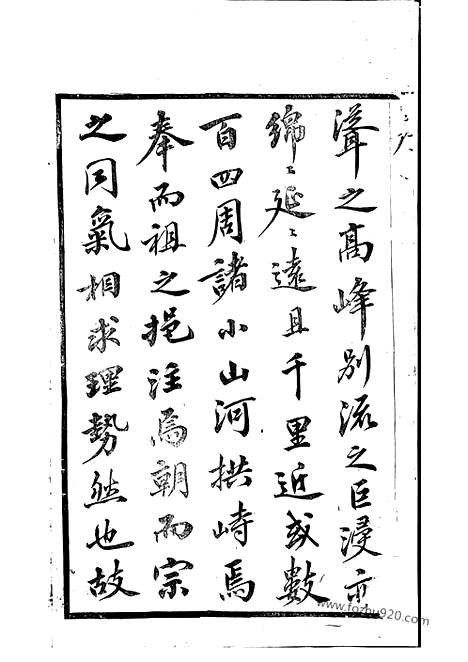 聳之高峰別流之巨浸亦
綿〻延〻遠且千里近或數
百四周諸小山河拱峙焉
奉而祖之挹注焉朝而宗
之同氣相求理勢然也故
www.fozhu920.com